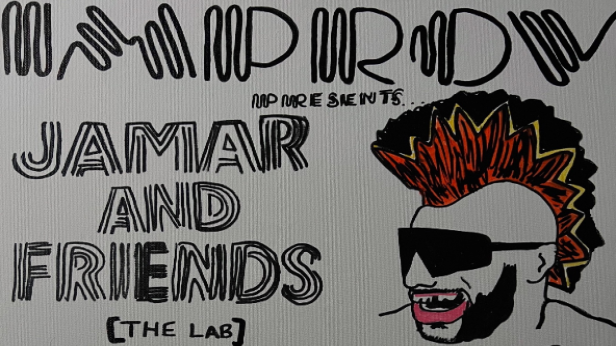 IMPROV
PRESENTS...
JAMAR
AND
FRIENDS
[THE LAB]